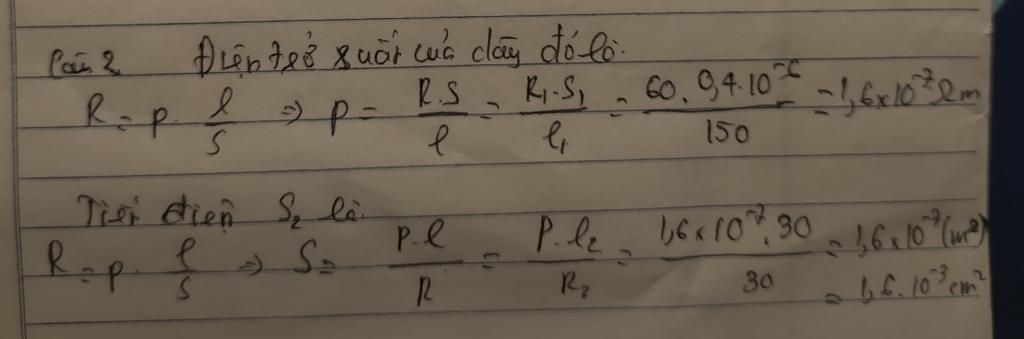 Câu 2 Điện trở suất của dây đó là.
R = p. l/S => p = R.S/l = R₁.S₁/l₁ = 60. 0,4.10⁻⁶/150 = 1,6x10⁻⁷ Ωm
Tiết diện S₂ là
R = p. l/S => S = p.l/R = P.l₂/R₂ = 1,6x10⁻⁷.30/30 = 1,6x10⁻⁷(m²)
= 1,6.10⁻³cm²